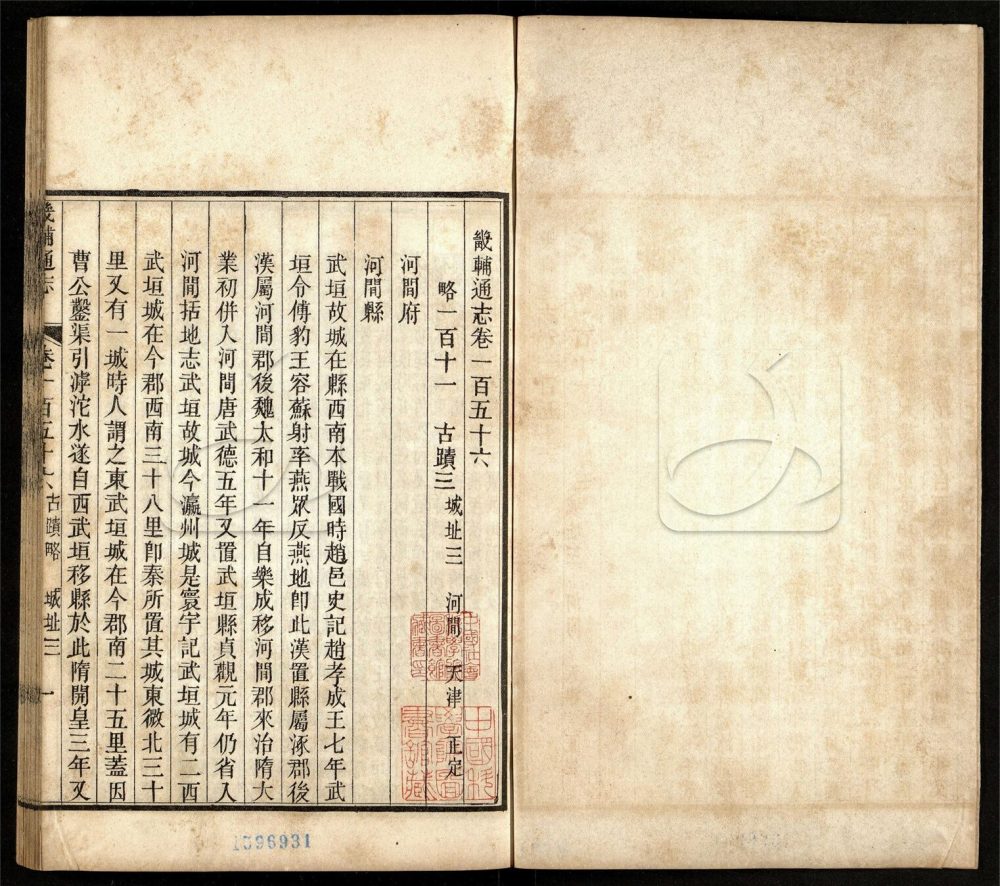 畿輔通志卷一百五十六
略一百十一　古蹟三　城址三　河間　天津　正定
河間府
河間縣
武垣故城在縣西南本戰國時趙邑史記趙孝成王七年武
垣令傅豹王容蘇射率燕眾反燕地卽此漢置縣屬涿郡後
漢屬河間郡後魏太和十一年自樂成移河間郡來治隋大
業初併入河間唐武德五年又置武垣縣貞觀元年仍省入
河間括地志武垣故城今瀛州城是寰宇記武垣城有二西
武垣城在今郡西南三十八里卽秦所置其城東微北三十
里又有一城時人謂之東武垣城在今郡南二十五里蓋因
曹公鑿渠引滹沱水遂自西武垣移縣於此隋開皇三年又
畿輔通志　卷一百五十六　古蹟略　城址三　一
1396931